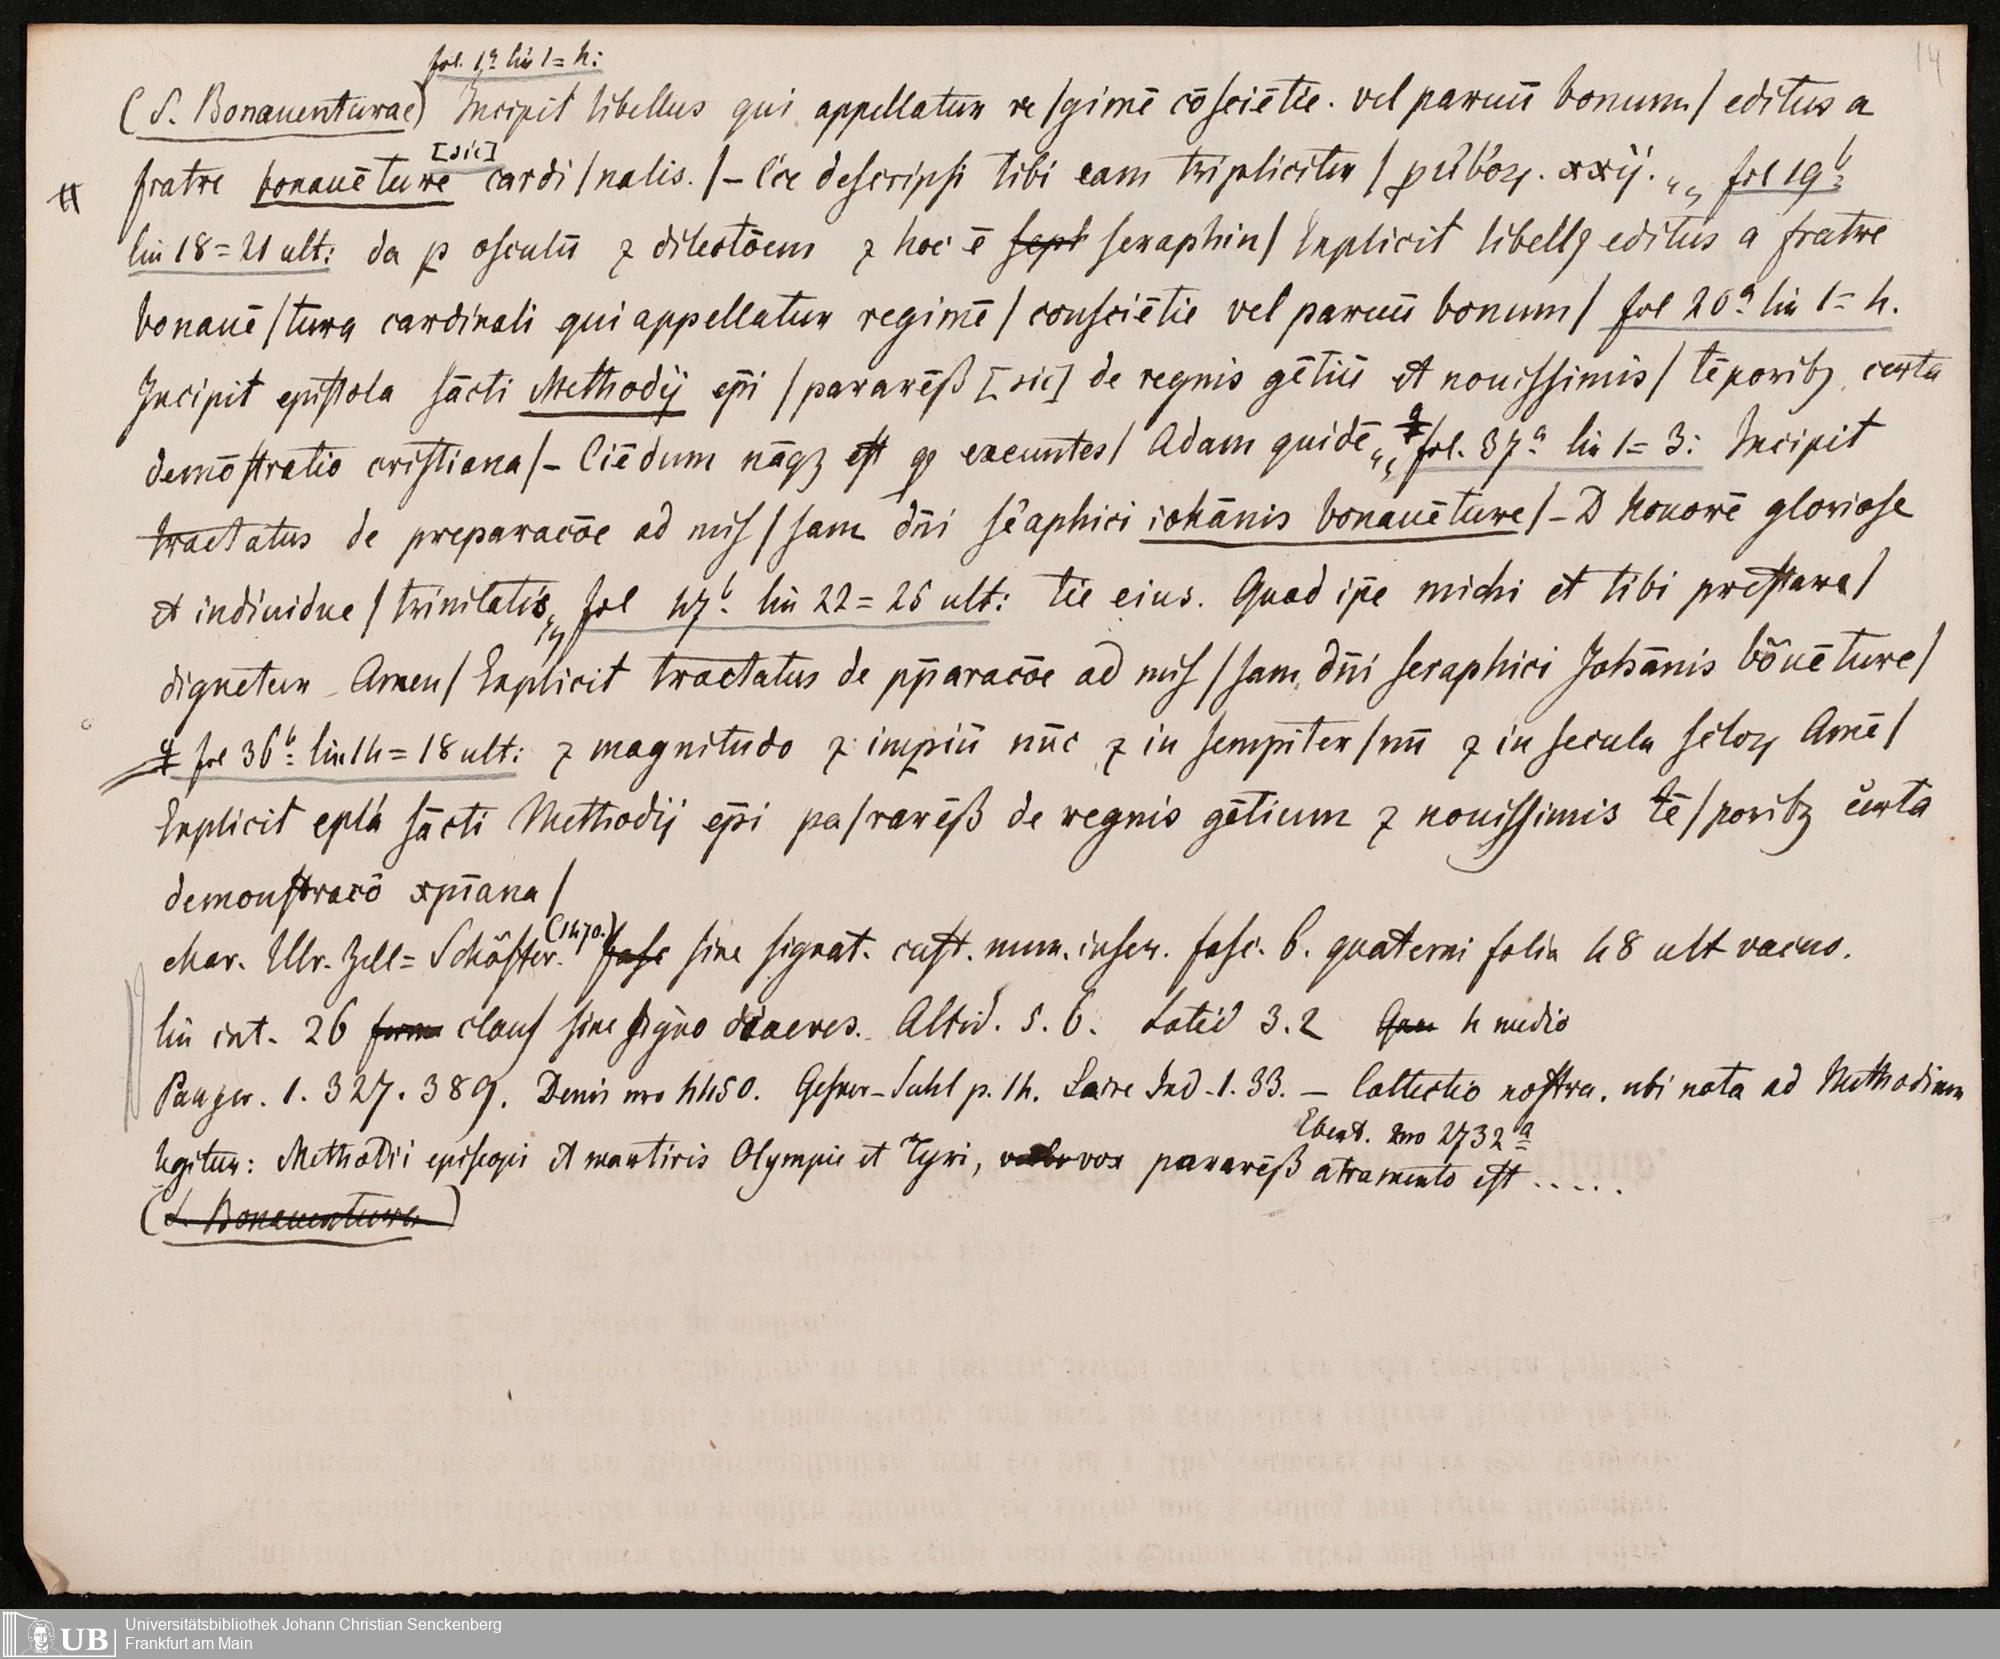 14
fol. 1a lin 1=4:
(S. Bonauenturae) Incipit libellus qui appellatur re/gimē cōsciētie. vel paruū bonum/ editus a
[sic]
fratre bonauēture cardi/nalis./– descripsi tibi eam tripliciter/ xxij. „„ fol 19b
lin 18=21 ult: da p osculū ⁊ dilectōem ⁊ hoc ē sept seraphin/ Explicit libellꝯ editus a fratre
bonauē/tura cardinali qui appellatur regimē/ consciētie vel paruū bonum/ fol 20a lin 1=4.
Incipit epistola sācti Methodij ep̄i /pararēß [sic] de regnis gētiū et nouissimis/ tēporibꝫ certa
demōstratio cristiana/– Ciēdum nāqꝫ est exeuntes/ Adam quidē„„ fol. 37a lin 1=3: Incipit
tractatus de preparacōe ad mis/sam dn̄i sēaphici iohānis bonauēture/– D honorē gloriose
et indiuidue/ trinitatis„„ fol 47b lin 22=25 ult: tie eius. Quod ip̄e michi et tibi prestare/
dignetur Amen/ Explicit tractatus de pp̄aracōe ad mis/sam dn̄i seraphici Johānis bōuēture/
fol 36b lin 14=18 ult: ⁊ magnitudo ⁊ impiū nūc ⁊ in sempiter/nū ⁊ in secula sēloꝝ Amē/
Explicit epl̄a sācti Methodij ep̄i pa/rarēß de regnis gētium ⁊ nouissimis tē/poribꝫ c̄rta
demonstracō xp̄iana/
(1470.)
char. Ulr. Zell=Schöffer. fasc sine signat. cust. num. inscr. fasc. 6. quaterni folia 48 ult vacuo.
lin int. 26 form clauf sine signo diaeres. Altid. 5.6. Latid 3.2 Qua 4 medio
Panzer. 1. 327. 389. Denis nro 4450. Gesner-Suhl p. 14. Laire Ind. 1. 33. – Collectio nostra. ubi nota ad Methodium
Ebert. nro 2732a
legitur: Methodii episcopi et martiris Olympie et Tyri, vox pararēß atramento est .....
(S. Bonauentura)
UB
Universitätsbibliothek Johann Christian Senckenberg
Frankfurt am Main